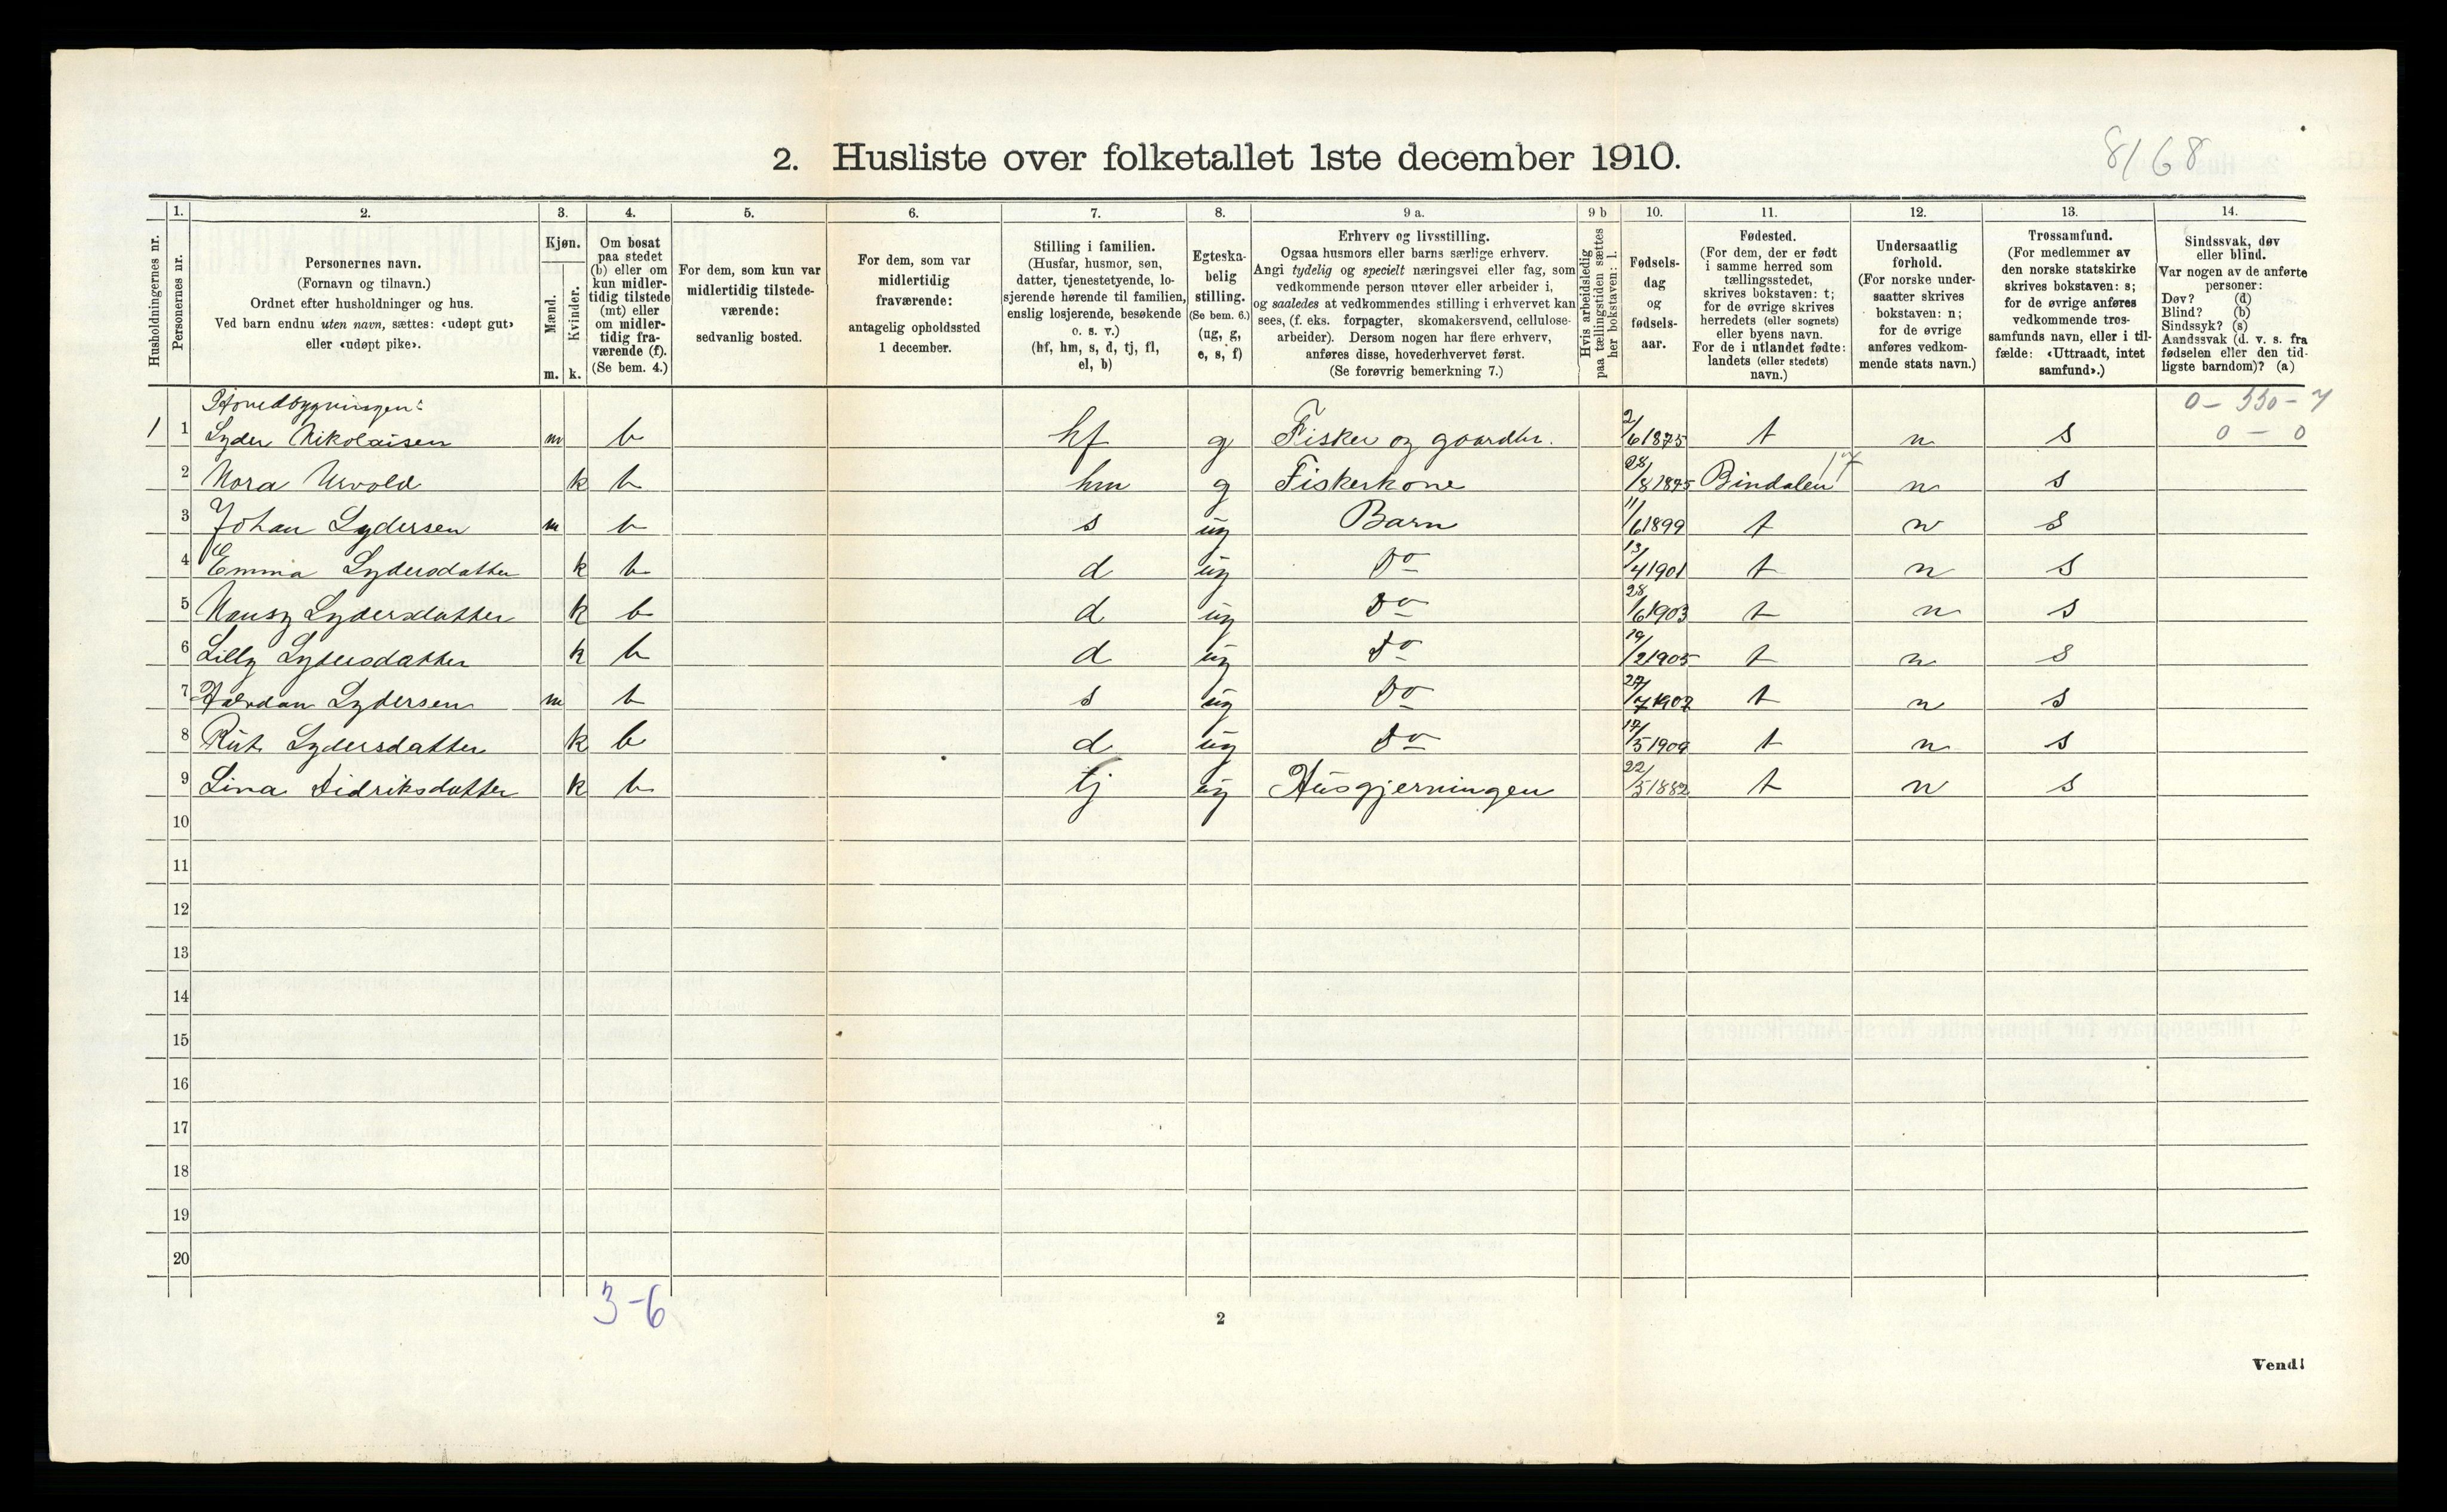 2. Husliste over folketallet 1ste december 1910.
8/68
Husholdningernes nr.
1.
Personernes nr.
2.
Personernes navn.
(Fornavn og tilnavn.)
Ordnet efter husholdninger og hus.
Ved barn endnu uten navn, sættes: «udøpt gut»
eller «udøpt pike».
3.
Kjøn.
Mænd.
Kvinder.
m. k.
4.
Om bosat
paa stedet
(b) eller om
kun midler-
tidig tilstede
(mt) eller
om midler-
tidig fra-
værende (f).
(Se bem. 4.)
5.
For dem, som kun var
midlertidig tilstede-
værende:
sedvanlig bosted.
6.
For dem, som var
midlertidig
fraværende:
antagelig opholdssted
1 december.
7.
Stilling i familien.
(Husfar, husmor, søn,
datter, tjenestetyende, lo-
sjerende hørende til familien,
enslig losjerende, besøkende
o. s. v.)
(hf, hm, s, d, tj, fl,
el, b)
8.
Egteska-
belig
stilling.
(Se bem. 6.)
(ug, g,
e, s, f)
9 a.
Erhverv og livsstilling.
Ogsaa husmors eller barns særlige erhverv.
Angi tydelig og specielt næringsvei eller fag, som
vedkommende person utøver eller arbeider i,
og saaledes at vedkommendes stilling i erhvervet kan
sees, (f. eks. forpagter, skomakersvend, cellulose-
arbeider). Dersom nogen har flere erhverv,
anføres disse, hovederhvervet først.
(Se forøvrig bemerkning 7.)
9 b
Hvis arbeidsledig
paa tællingstiden sættes
her bokstaven: l.
10.
Fødsels-
dag
og
fødsels-
aar.
11.
Fødested.
(For dem, der er født
i samme herred som
tællingsstedet,
skrives bokstaven: t;
for de øvrige skrives
herredets (eller sognets)
eller byens navn.
For de i utlandet fødte:
landets (eller stedets)
navn.)
12.
Undersaatlig
forhold.
(For norske under-
saatter skrives
bokstaven: n;
for de øvrige
anføres vedkom-
mende stats navn.)
13.
Trossamfund.
(For medlemmer av
den norske statskirke
skrives bokstaven: s;
for de øvrige anføres
vedkommende tros-
samfunds navn, eller i til-
fælde: «Uttraadt, intet
samfund».)
14.
Sindssvak, døv
eller blind.
Var nogen av de anførte
personer:
Døv? (d)
Blind? (b)
Sindssyk? (s)
Aandssvak (d. v. s. fra
fødselen eller den tid-
ligste barndom)? (a)
Hovedbygningen:
0 - 550 - 7
1 1 Lyder Nikolaisen m b hf g Fisker og gaardbr. 2/6 1875 t n s 0 - 0
2 Nora Urvold k b hm g Fiskerkone 28/8 1875 Bindalen 17 n s
3 Johan Lydersen m b s ug Barn 11/6 1899 t n s
4 Emma Lydersdatter k b d ug Do 13/4 1901 t n s
5 Nansy Lydersdatter k b d ug Do 28/6 1903 t n s
6 Lilly Lydersdatter k b d ug Do 19/2 1905 t n s
7 Halvdan Lydersen m b s ug Do 27/7 1907 t n s
8 Rut Lydersdatter k b d ug Do 17/5 1909 t n s
9 Lina Didriksdatter k b tj ug Husgjerningen 22/5 1882 t n s
10
11
12
13
14
15
16
17
18
19
20
3-6
2
Vend!